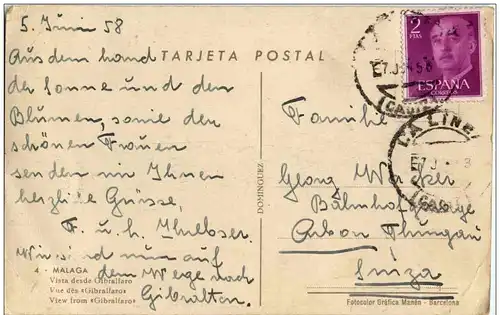 5. Juni 58
TARJETA POSTAL
Aus dem Land
der Sonne und den
Blumen, sowie den
schönen Frauen
senden wir Ihnen
herzliche Grüsse,
F. u. h.
Wir sind nun auf
dem Wege nach
Gibraltar.
4 - MALAGA
Vista desde Gibralfaro
Vue dès «Gibralfaro»
View from «Gibralfaro»
DOMINGUEZ
2
PTAS
ESPAÑA
CORREOS
LA LINEA
Familie
Georg
Bahnhof
Arbon Thurgau
Suiza
Fotocolor Gráfica Manén - Barcelona